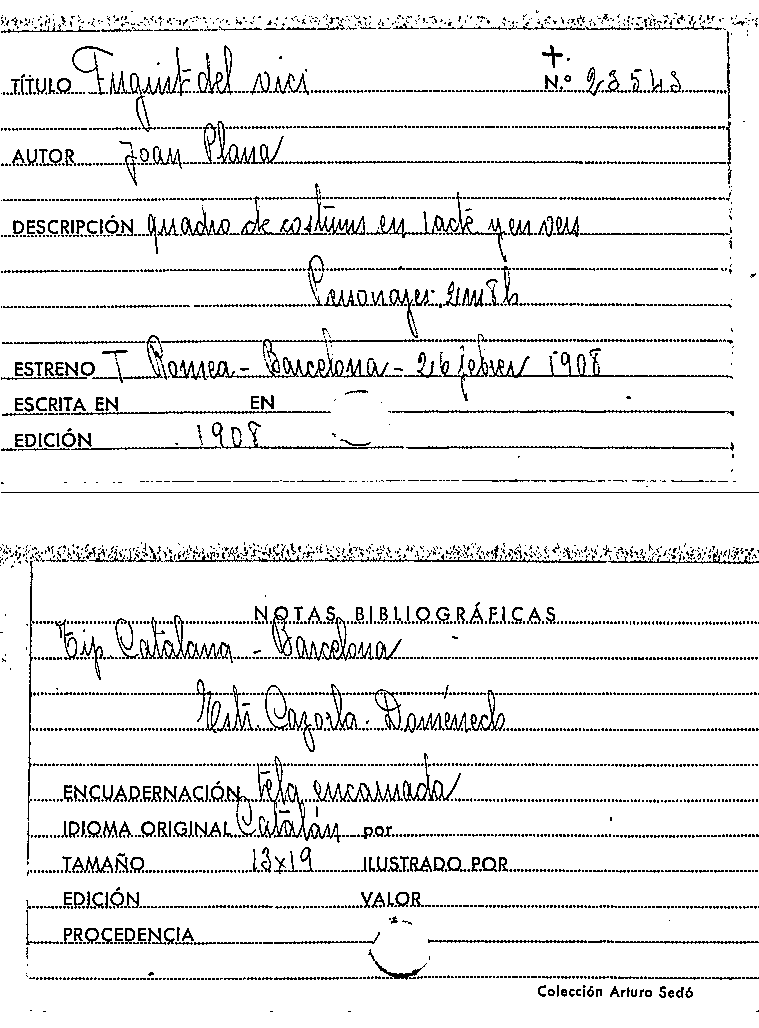 +.
TÍTULO Fugint del vici N.º 23543
AUTOR Joan Plana
DESCRIPCIÓN quadro de costums en 1 acte y en vers
Personajes: 2m 8h
ESTRENO T Romea - Barcelona - 26 febrer 1908
ESCRITA EN EN
EDICIÓN 1908
NOTAS BIBLIOGRÁFICAS
Tip Catalana - Barcelona
Cazorla. Doménech
ENCUADERNACIÓN tela encarnada
IDIOMA ORIGINAL Catalán por
TAMAÑO 13x19 ILUSTRADO POR
EDICIÓN VALOR
PROCEDENCIA
Colección Arturo Sedó